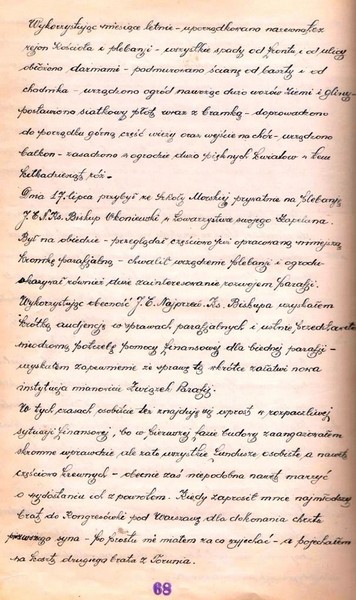 Wykorzystując miesiące letnie - uporządkowano nazewnątrz
rejon Kościoła i plebanji - wszystkie spady od frontu i od ulicy
obłożono darniami - podmurowano ścianę od baszty i od
chodnika - urządzono ogród nawożąc dużo wozów ziemi i gliny -
postawiono siatkowy płot wraz z bramką - doprowadzono
do porządku górną część wieży oraz wyjście na chór - urządzono
balkon - zasadzono w ogrodzie dużo pięknych kwiatów w tem
kilkadziesiąt róż. -
Dnia 17. lipca przybył ze Szkoły Morskiej prywatnie na plebanję
J. E. N. Ks. Biskup Okoniewski w towarzystwie swojego kapelana.
Był na obiedzie - przeglądał częściowo już opracowaną niniejszą
kronikę parafjalną - chwalił urządzenie plebanji i ogrodu
okazywał również duże zainteresowanie rozwojem parafji.
Wykorzystując obecność J. E. Najprzew. Ks. Biskupa uzyskałem
krótką audjencję w sprawach parafjalnych i ustnie przedstawiłem
niedomogę potrzebę pomocy finansowej dla biednej parafji -
uzyskałem zapewnienie że sprawę tę wkrótce załatwi nowa
instytucja mianowicie Związek Parafji.
W tych czasach osobiście też znajduję się wprost w rozpaczliwej
sytuacji finansowej, bo w pierwszej fazie budowy zaangażowałem
skromne wprawdzie ale zato wszystkie fundusze osobiste a nawet
częściowo krewnych - obecnie zaś niepodobna nawet marzyć
o wydostaniu ich z powrotem. Kiedy zaprosił mnie najmłodszy
brat do Kongresówki pod Warszawę dla dokonania chrztu
pierwszego syna - po prostu nie miałem za co wyjechać - a pojechałem
na koszt drugiego brata z Torunia.
68